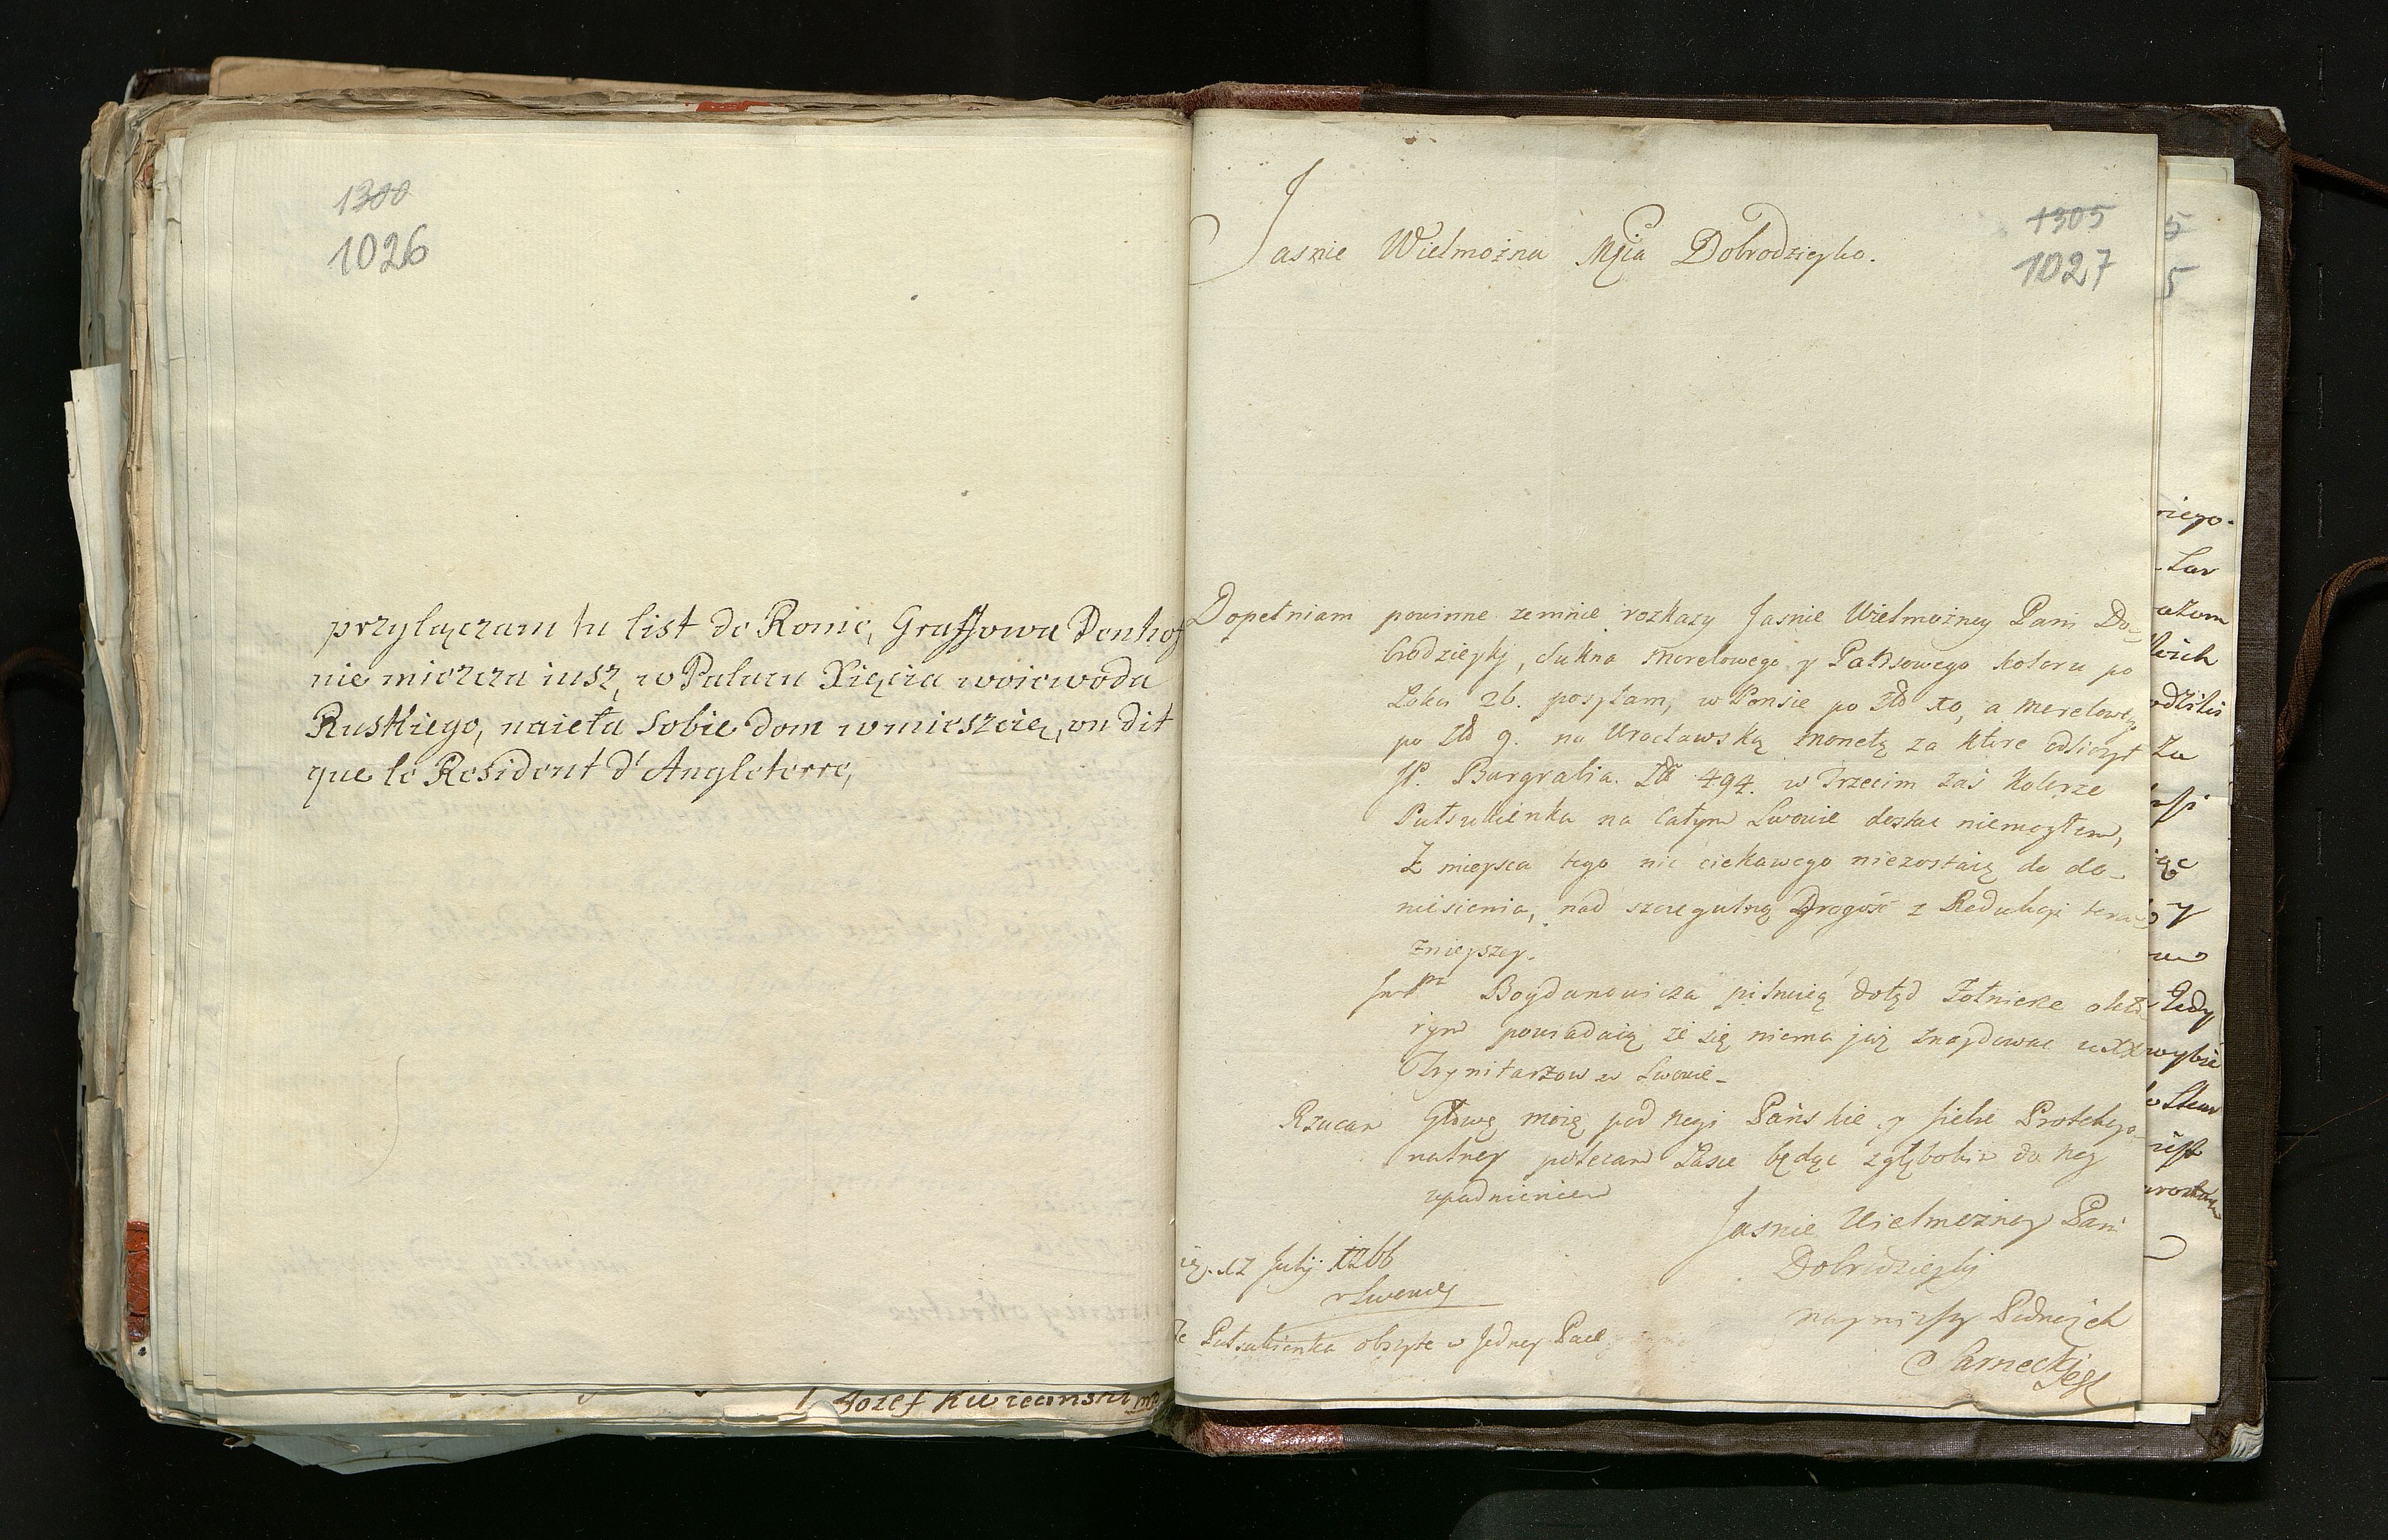 1300
1026
przyłączam tu list do Ronie, Graffowa Denhof
nie miezcza iusz, w Pałacu Xięcia woiewoda
Ruskiego, naieła sobie dom w miescie, on dit
que le Resident d'Angleterre,
Jozef
1305
1027
Jasnie Wielmożna Mcia Dobrodzieyko.
Dopełniam powinne zemnie rozkazy Jasnie Wielmożney Pani Do-
brodzieyki, Sukna Morelowego y Pąsowego koloru po
Łokci 26. posyłam, w Ponsie po Zł 10, a morelowe
po Zł 9. na Wrocławską monetę za ktore odliczył
JP. Burgrabia. Zł 494. w Trzecim zaś kolorze
Pułsukienka na całym Lwowie dostac niemogłem,
Z mieysca tego nic ciekawego niezostaię do do-
niesienia, nad szczegulną Drogość z Redukcyi tera
znieyszey.
Bogdanowicza pilnuią dotąd Zołnierze
rym powiadaią że się niema już znaydować u XX
Trynitarzow w Lwowie -
Rzucam Głowę moię pod nogi Pańskie y siebie Protekcyo-
nalney polecam Łasce będąc z głębokim do nog
upadnieniem
Jasnie Wielmożney Pani
Dobrodzieyki
17 Julij 1766
w Lwowie
nayniższy Podnożek
Sarnecki
Pułsukienka obszyte w Jedney Pace
5
5
riego.